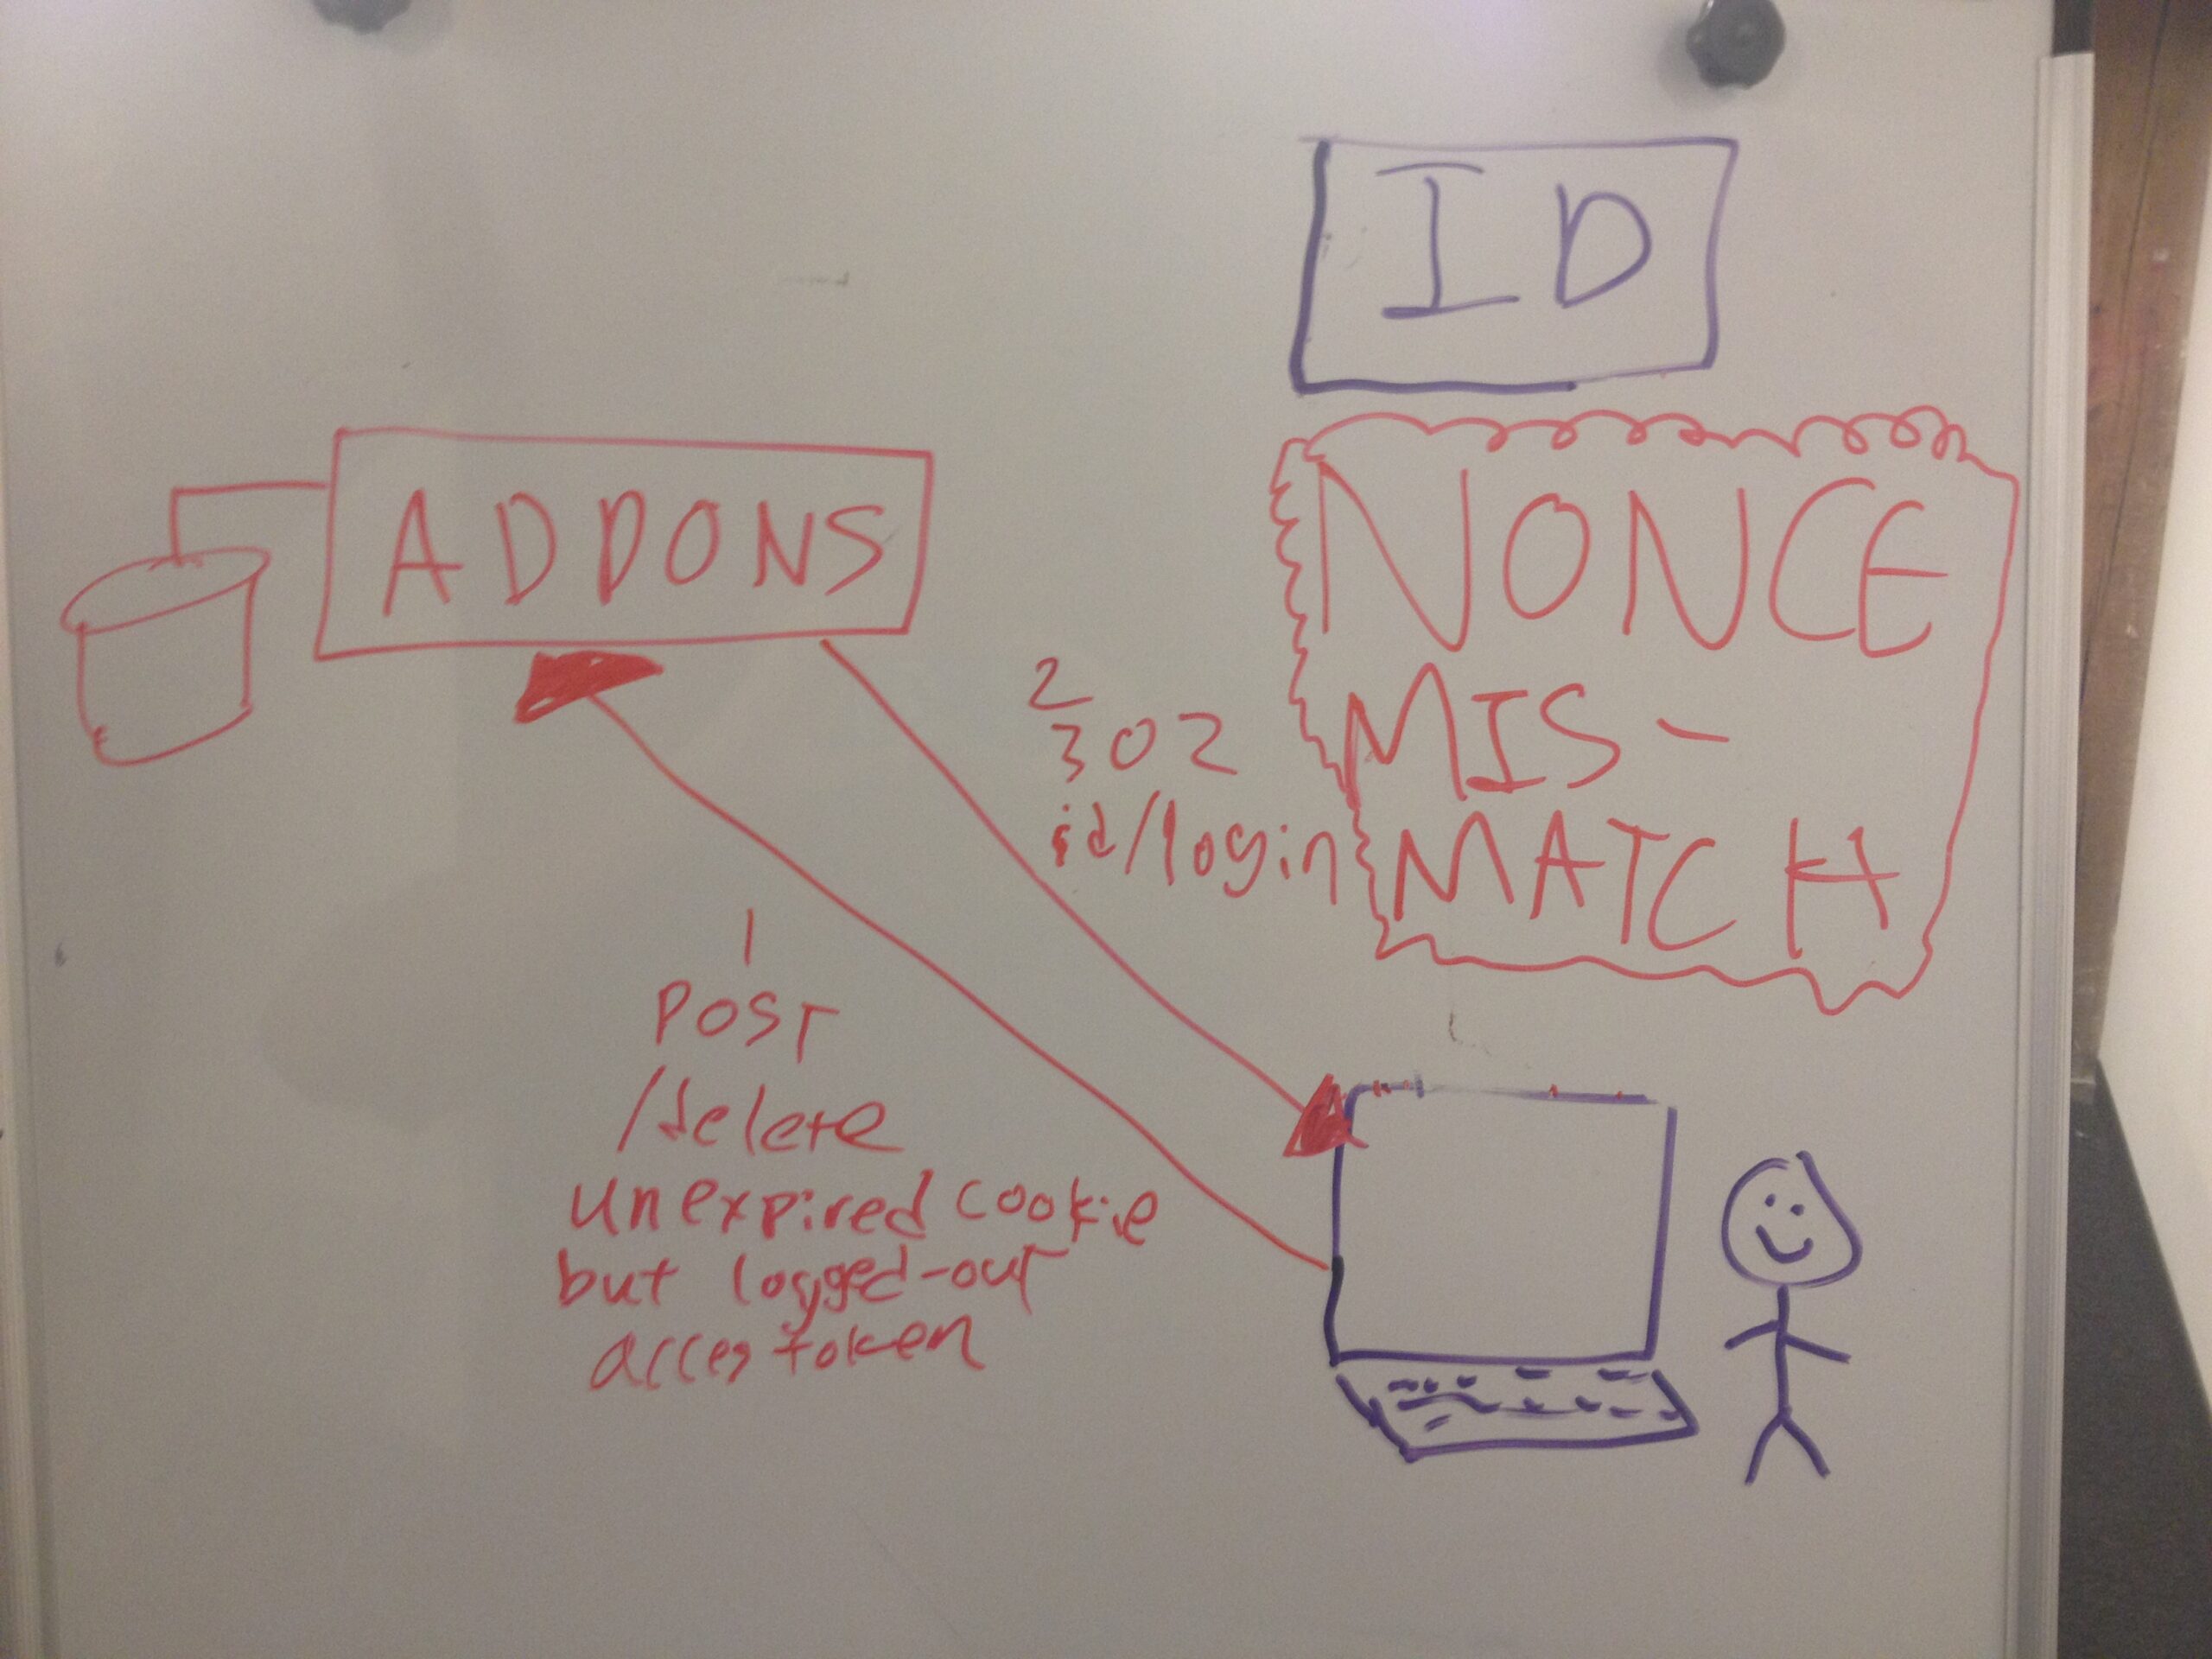 ID
ADDONS
NONCE
MIS-
MATCH
2
302
id/login
1
POST
/delete
unexpired cookie
but logged-out
acces token